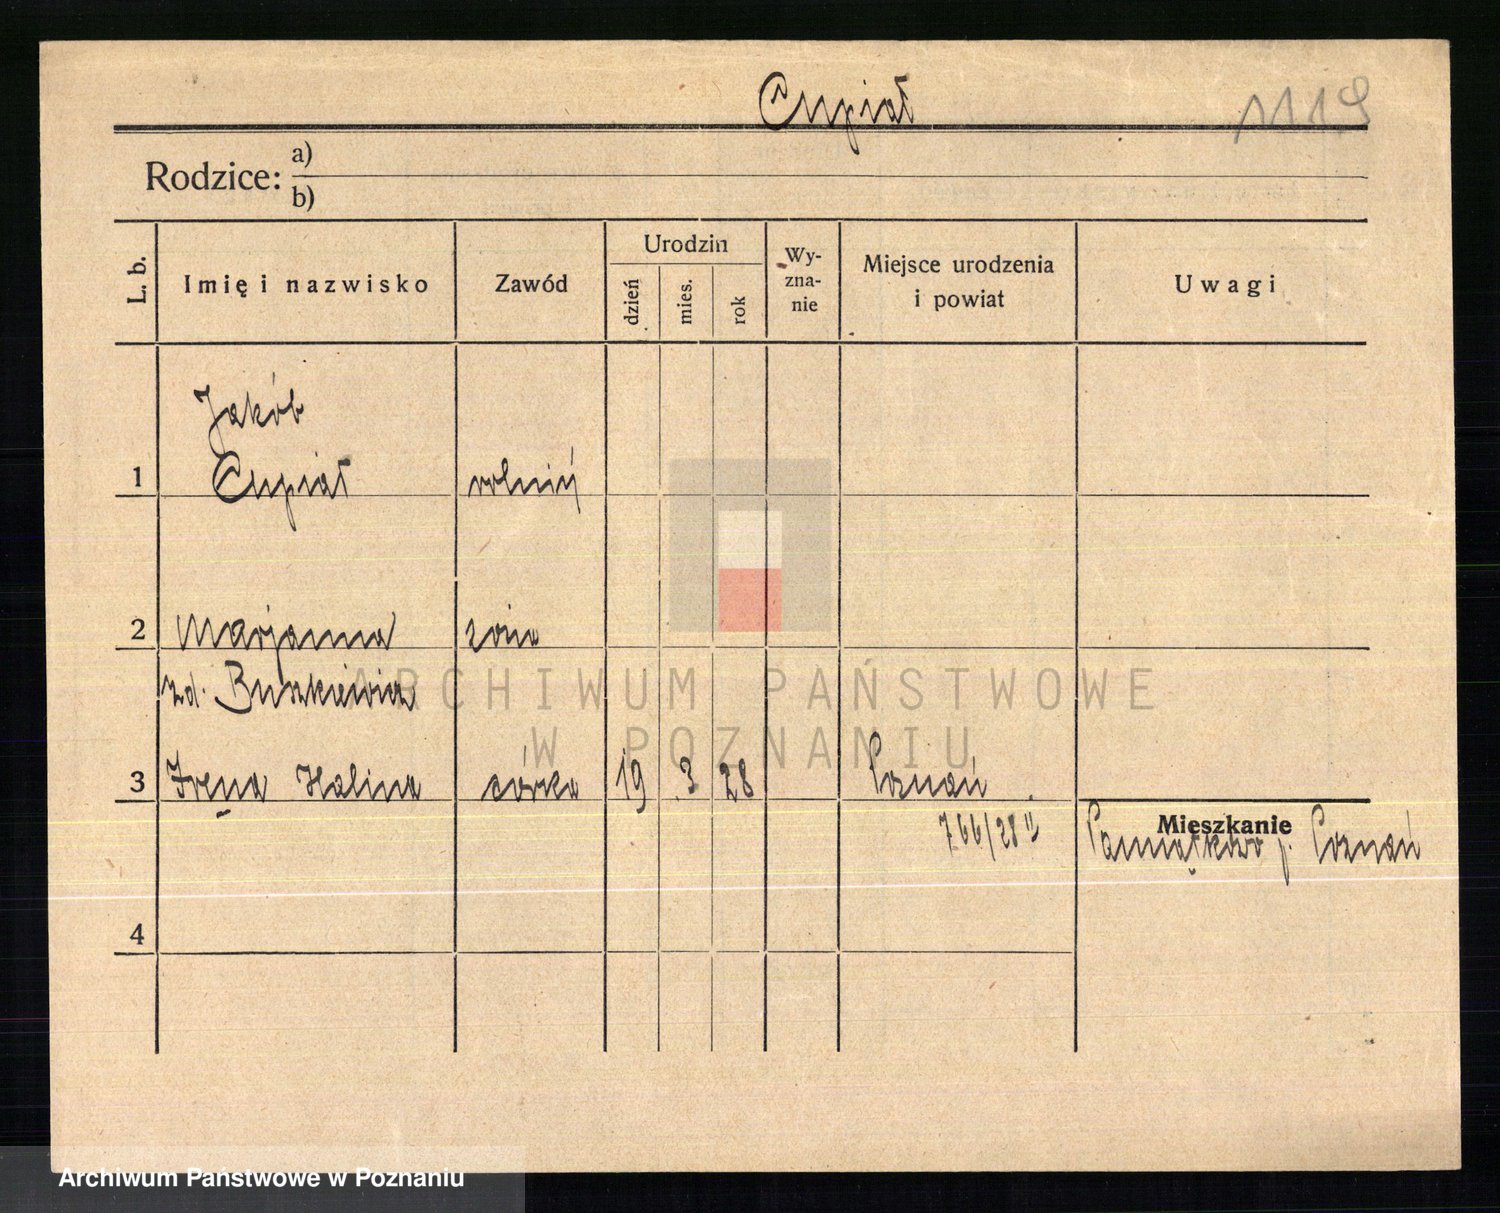 Cupiał 1119
Rodzice: a)
b)
L. b. Imię i nazwisko Zawód Urodzin Wy-zna-nie Miejsce urodzenia i powiat Uwagi
dzień mies. rok
Jakób
1 Cupiał rolnik
2 Marjanna żona
zd. Buszkiewicz
3 Irena Halina córka 19 3 28 Poznań
766/28 II
Mieszkanie
Pamiątkowo p. Poznań
4
ARCHIWUM PAŃSTWOWE
W POZNANIU
Archiwum Państwowe w Poznaniu